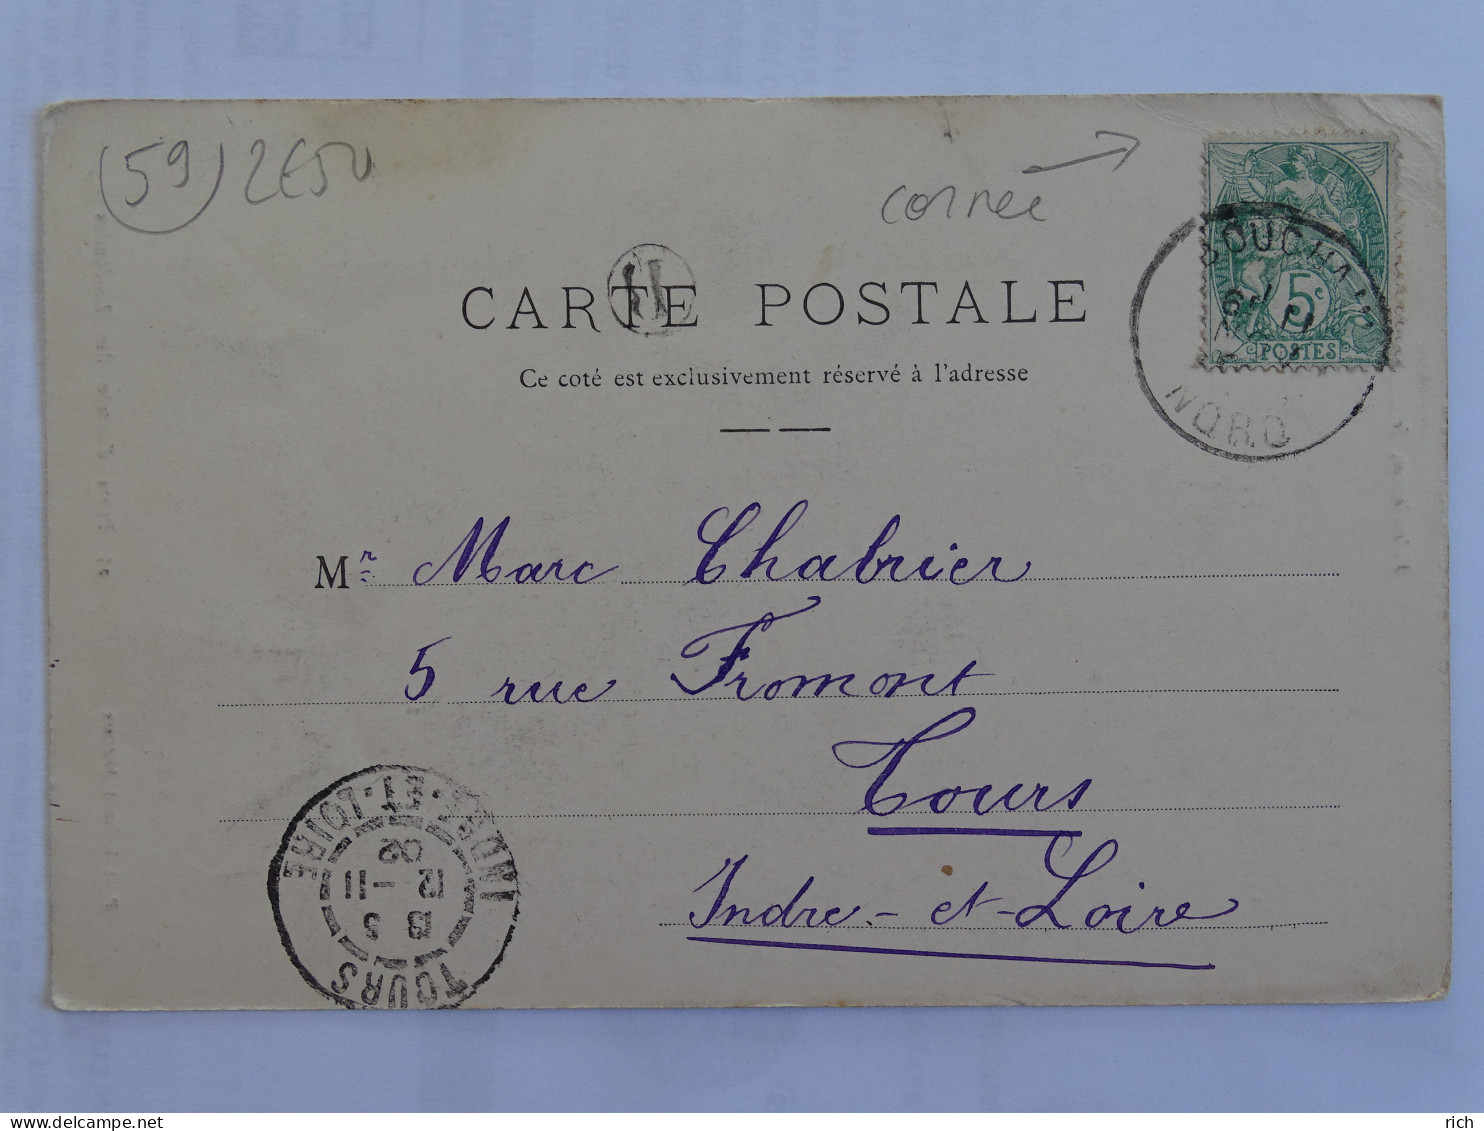 (59) 2E50
cornée
H
CARTE POSTALE
Ce coté est exclusivement réservé à l'adresse
BOUCHAIN
NORD
5c
POSTES
Mr Marc Chabrier
5 rue Fromont
Tours
Indre-et-Loire
TOURS
13 5
12 - 11
02
INDRE-ET-LOIRE
rich